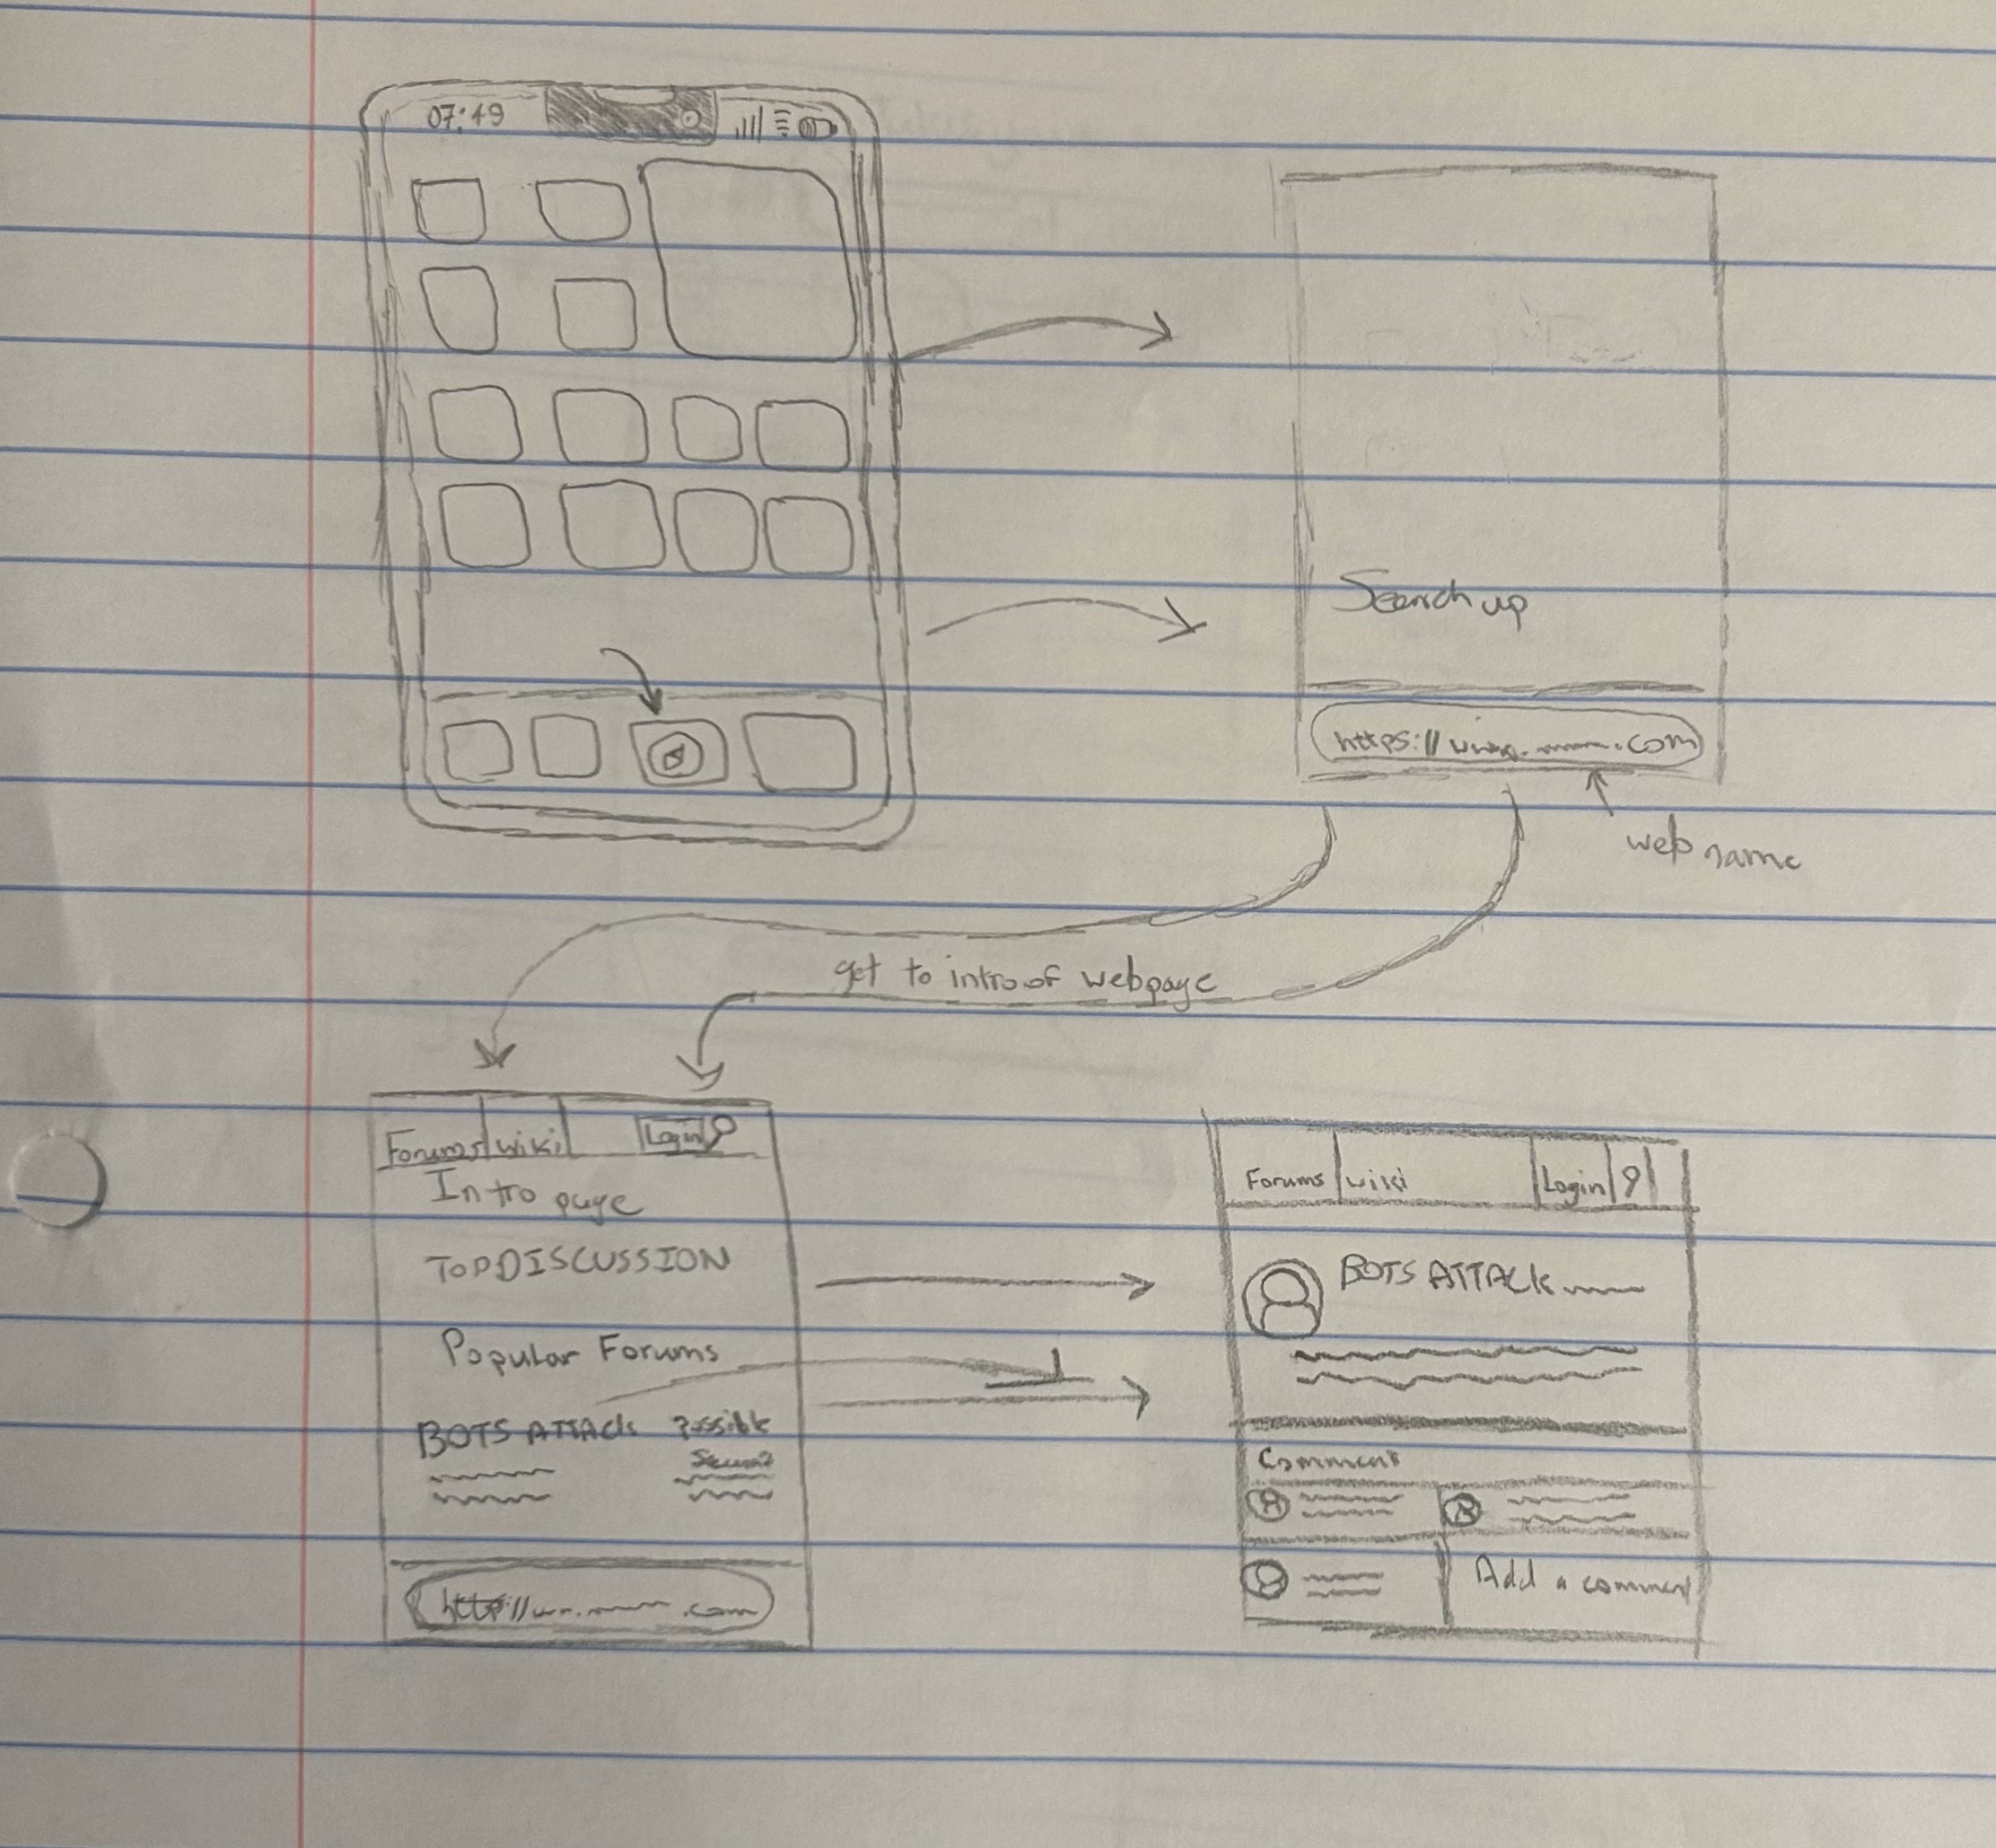 07:49
Search up
https://www. .com
web name
get to intro of webpage
Forums wiki Login
Intro page
TOP DISCUSSION
Popular Forums
BOTS ATTACK Possible
https:// .com
Forums wiki Login
BOTS ATTACK
Comment
Add a comment